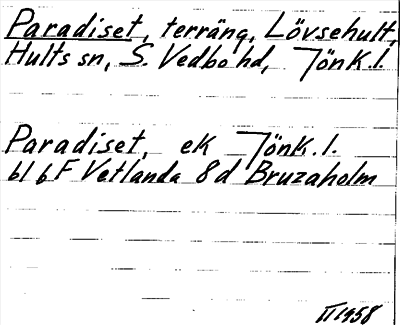 Paradiset, terräng, Lövsehult,
Hults sn, S. Vedbo hd, Jönk. l.
Paradiset, ek Jönk. l.
bl 6F Vetlanda 8d Bruzaholm
II 1958